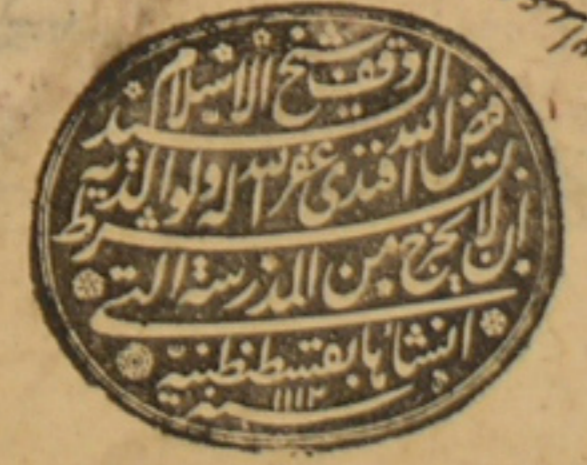 وقف شيخ الاسلام السيد
فيض الله افندى غفر الله له ولوالديه
بشرط
ان لا يخرج من المدرسة التى
انشأها بقسطنطينية
سنه ١١١٢